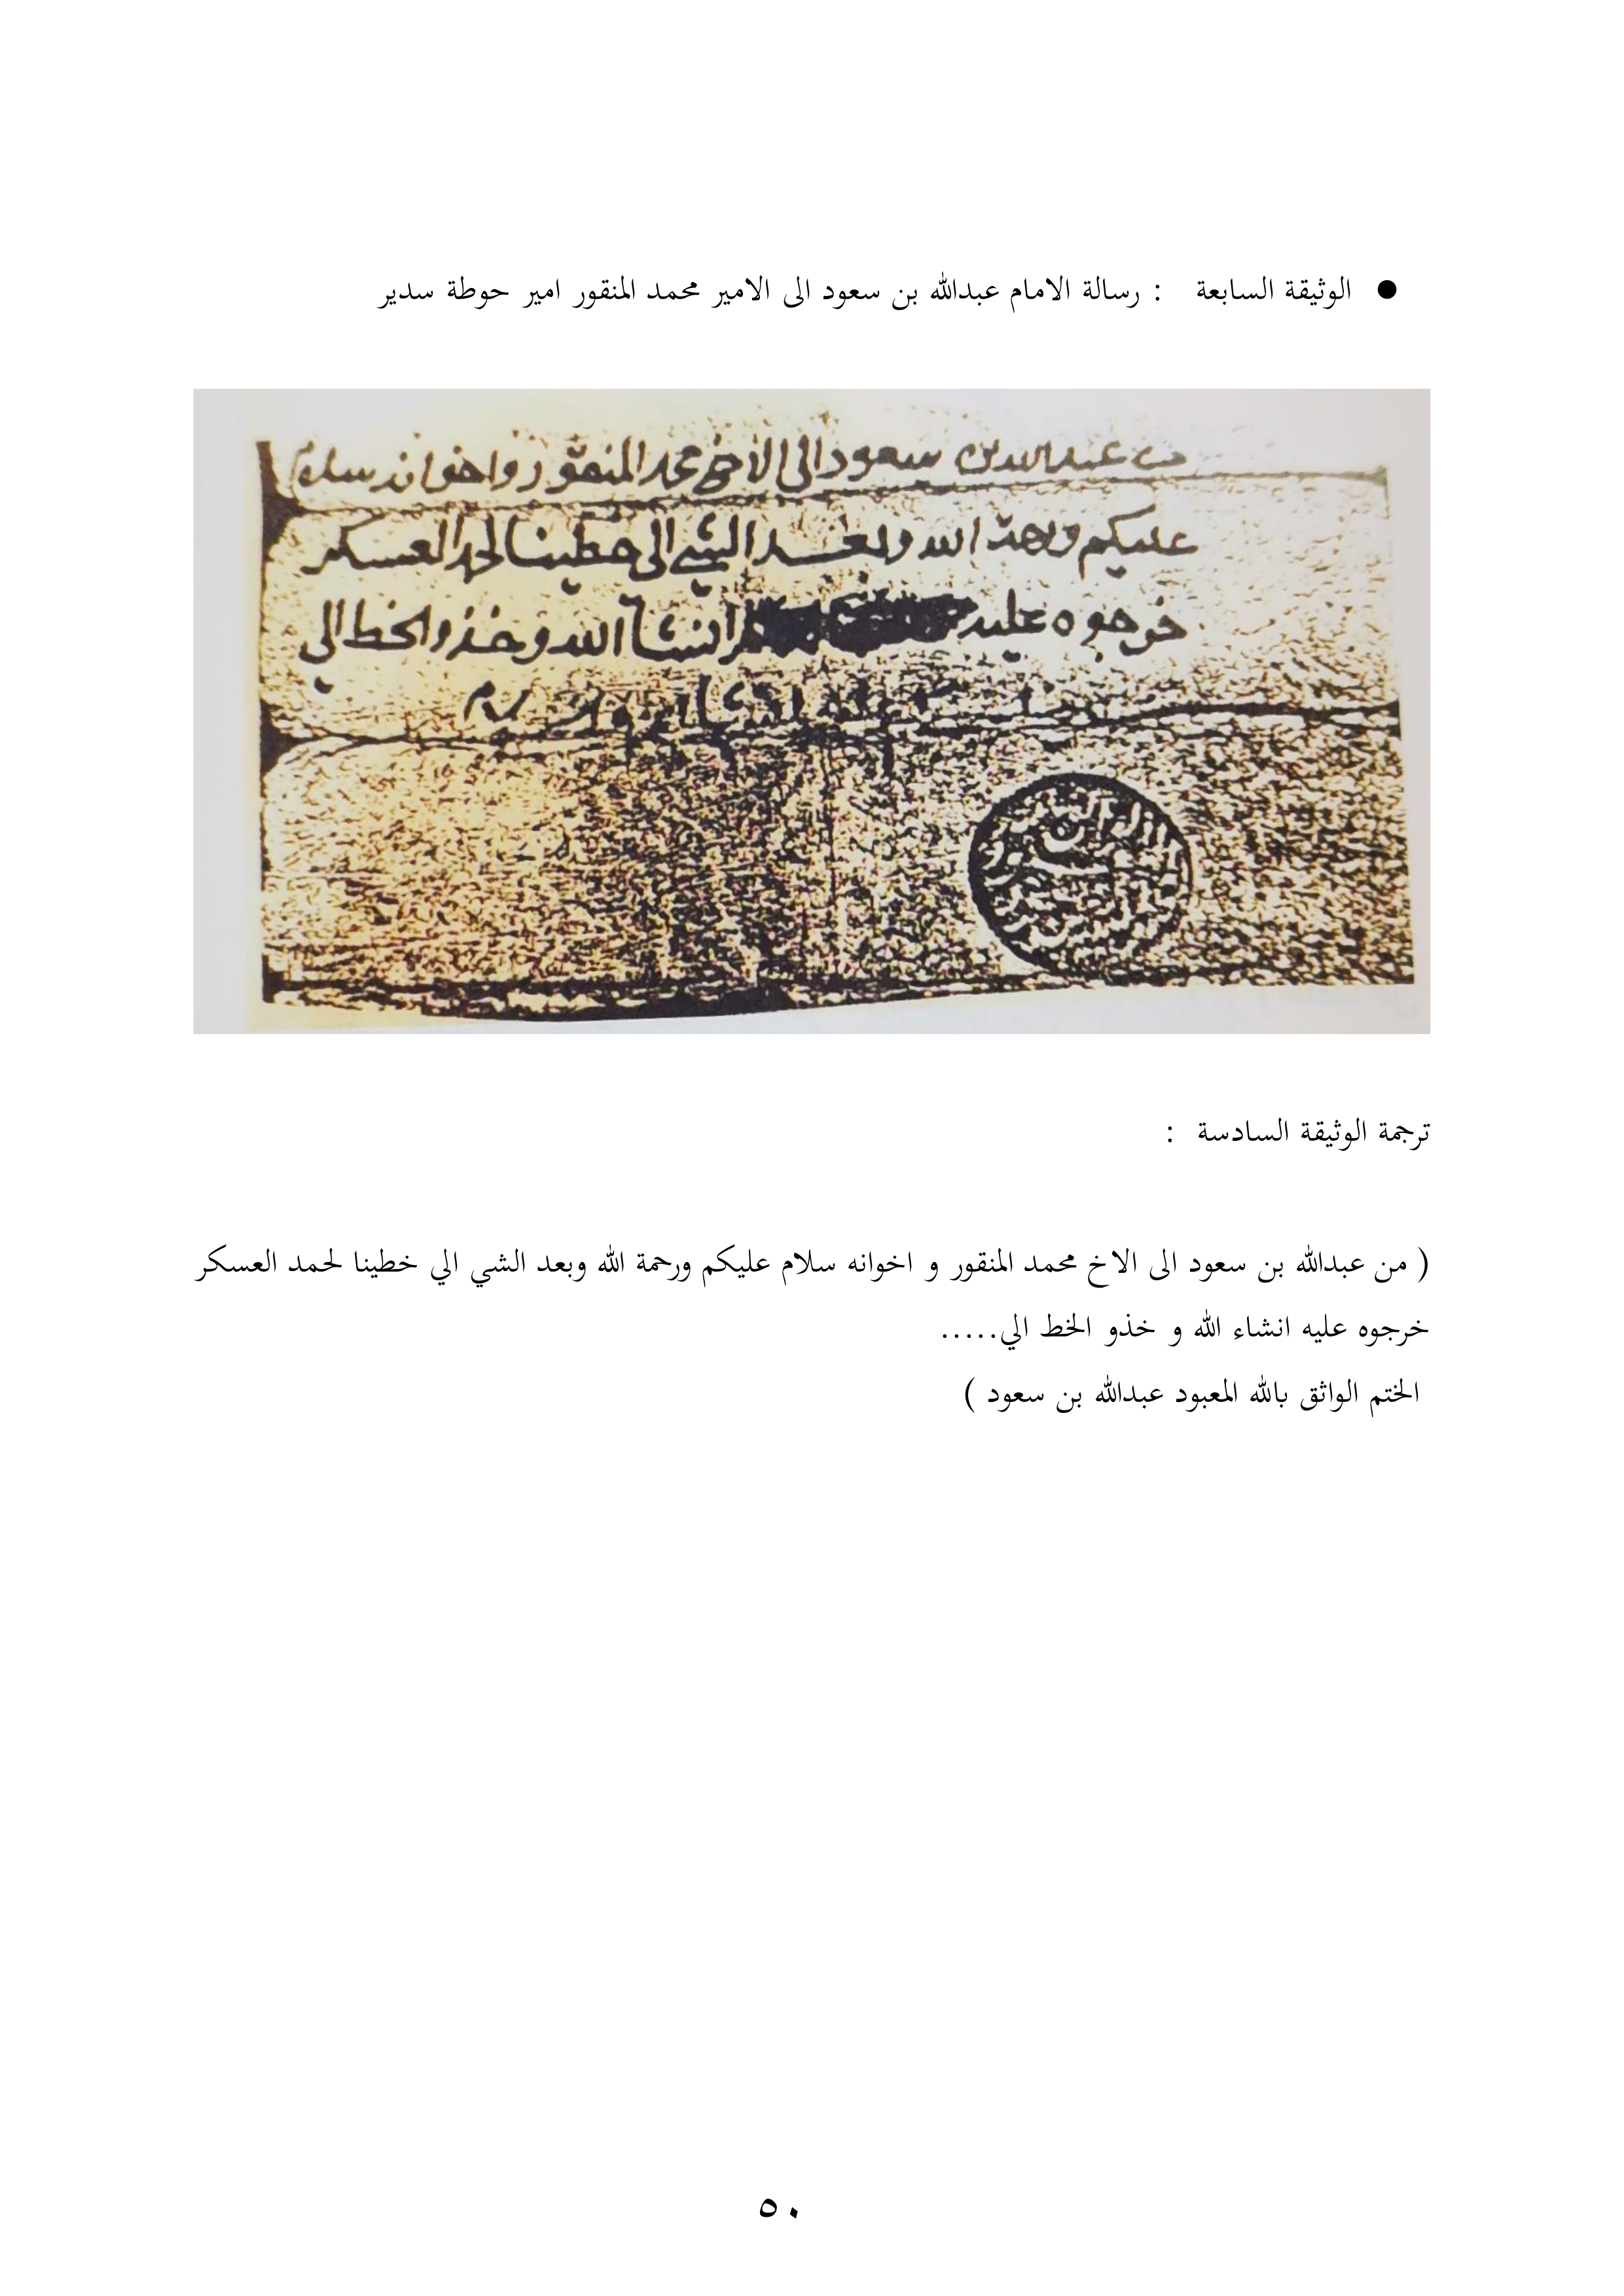 ● الوثيقة السابعة : رسالة الامام عبدالله بن سعود الى الامير محمد المنقور امير حوطة سدير
من عبدالله بن سعود الى الاخ محمد المنقور واخوانه سلام
عليكم ورحمة الله وبعد الشي الي خطينا لحمد العسكر
خرجوه عليه انشآ الله وخذوا الخط الي
ترجمة الوثيقة السادسة :
( من عبدالله بن سعود الى الاخ محمد المنقور و اخوانه سلام عليكم ورحمة الله وبعد الشي الي خطينا لحمد العسكر
خرجوه عليه انشاء الله و خذو الخط الي.....
الختم الواثق بالله المعبود عبدالله بن سعود )
٥٠